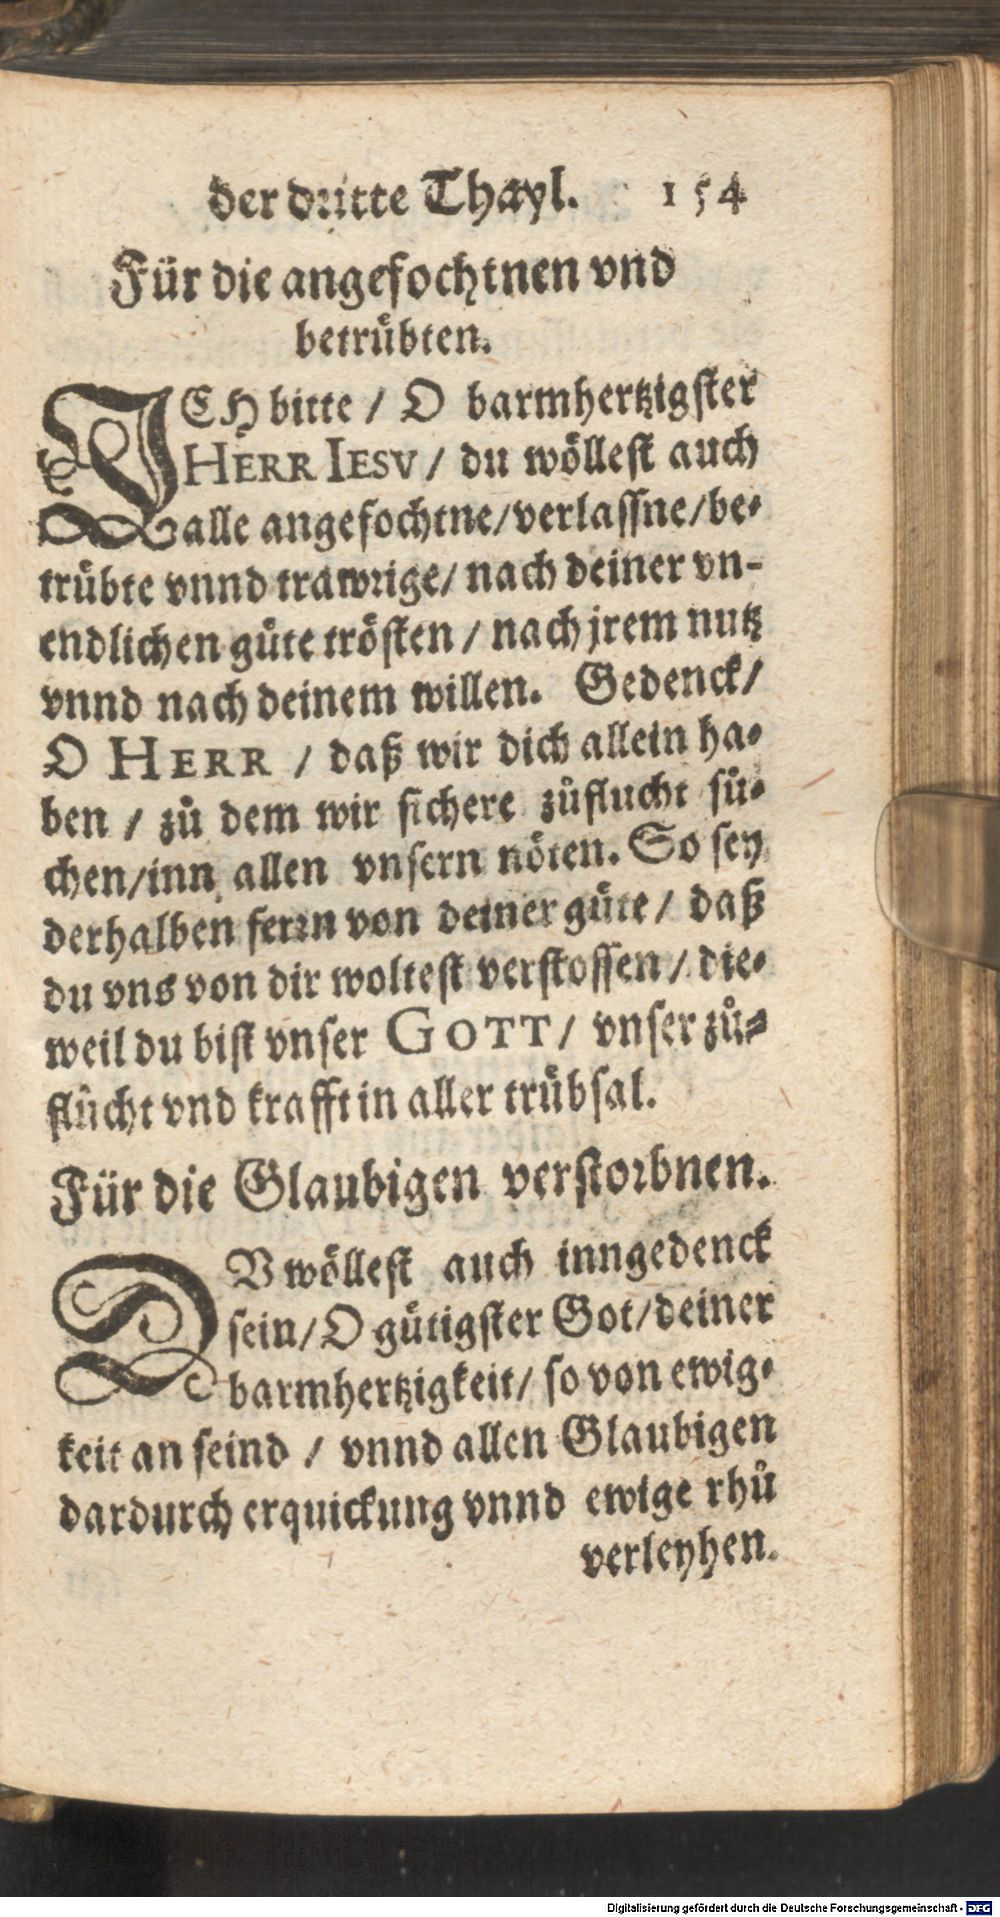 der dritte Thayl. 154
Für die angefochtnen vnd
betrübten.
ICH bitte / O barmhertzigster
HERR IESV / du wöllest auch
alle angefochtne/verlassne/be-
trübte vnnd trawrige/ nach deiner vn-
endlichen güte trösten / nach jrem nutz
vnnd nach deinem willen. Gedenck/
O HERR / daß wir dich allein ha-
ben / zů dem wir sichere zůflucht sů-
chen/inn allen vnsern nöten. So sey
derhalben ferrn von deiner güte / daß
du vns von dir woltest verstossen / die-
weil du bist vnser GOTT / vnser zů-
flůcht vnd krafft in aller trübsal.
Für die Glaubigen verstorbnen.
DV wöllest auch inngedenck
sein/ O gütigster Got/deiner
barmhertzigkeit/ so von ewig-
keit an seind / vnnd allen Glaubigen
dardurch erquickung vnnd ewige rhů
verleyhen.
Digitalisierung gefördert durch die Deutsche Forschungsgemeinschaft - DFG